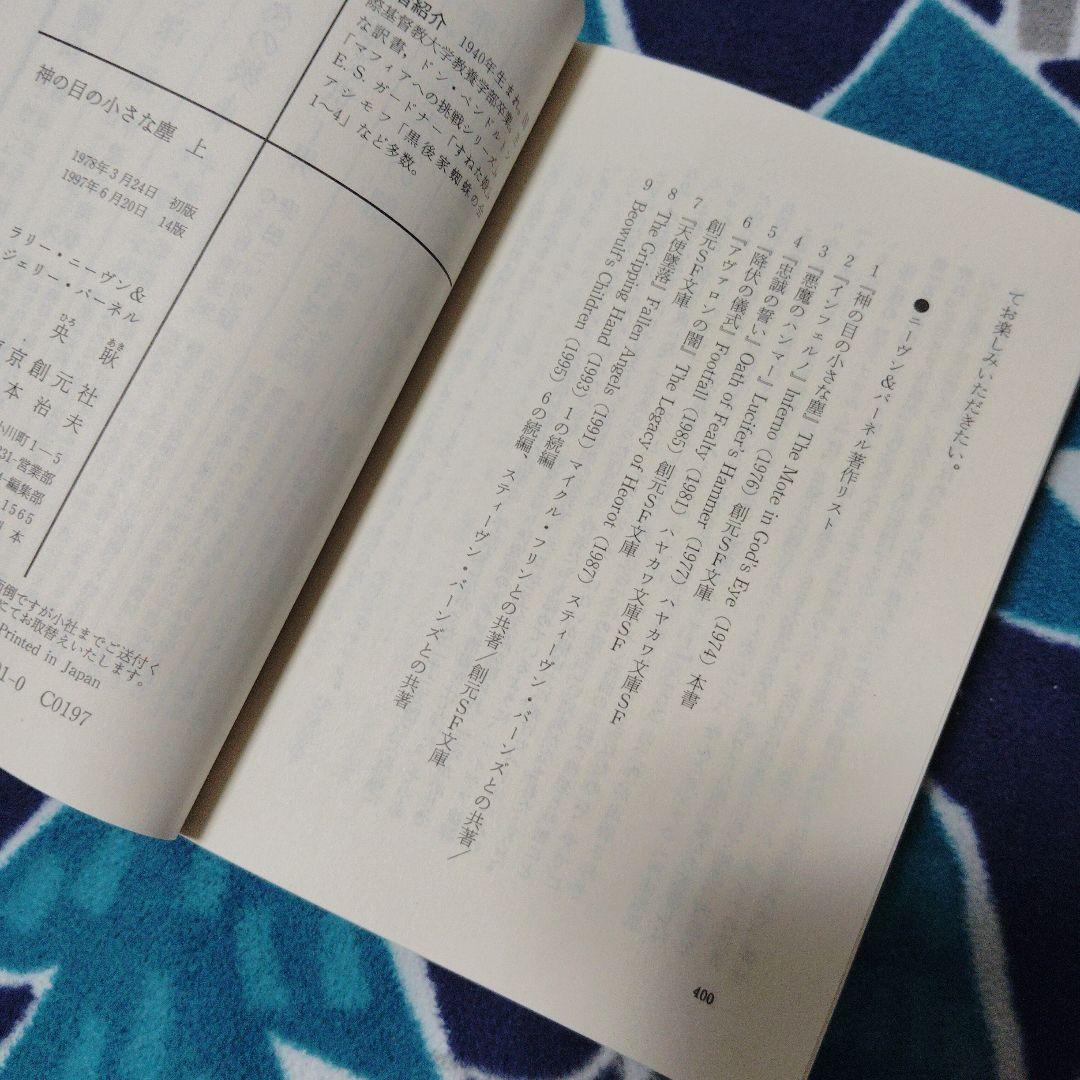 てお楽しみいただきたい。
●ニーヴン&パーネル著作リスト
1 『神の目の小さな塵』 The Mote in God's Eye (1974) 本書
2 『インフェルノ』 Inferno (1976) 創元SF文庫
3 『悪魔のハンマー』 Lucifer's Hammer (1977) ハヤカワ文庫SF
4 『忠誠の誓い』 Oath of Fealty (1981) ハヤカワ文庫SF
5 『降伏の儀式』 Footfall (1985) 創元SF文庫
6 『アヴァロンの闇』 The Legacy of Heorot (1987) スティーヴン・バーンズとの共著/
創元SF文庫
7 『天使墜落』 Fallen Angels (1991) マイクル・フリンとの共著/創元SF文庫
8 The Gripping Hand (1993) 1の続編
9 Beowulf's Children (1995) 6の続編、スティーヴン・バーンズとの共著
400
紹介 1940年生まれ。
際基督教大学教養学部卒業。
な訳書，ドン・ペンドルトン
「マフィアへの挑戦シリーズ」
E. S. ガードナー「すねた娘」
アシモフ「黒後家蜘蛛の会
1〜4」など多数。
神の目の小さな塵 上
1978年3月24日 初版
1997年6月20日 14版
ラリー・ニーヴン&
ジェリー・パーネル
ひろ あき
央 耿
京創元社
本治夫
小川町1-5
231-営業部
4-編集部
1565
本
面倒ですが小社までご送付く
にてお取替えいたします。
Printed in Japan
1-0 C0197